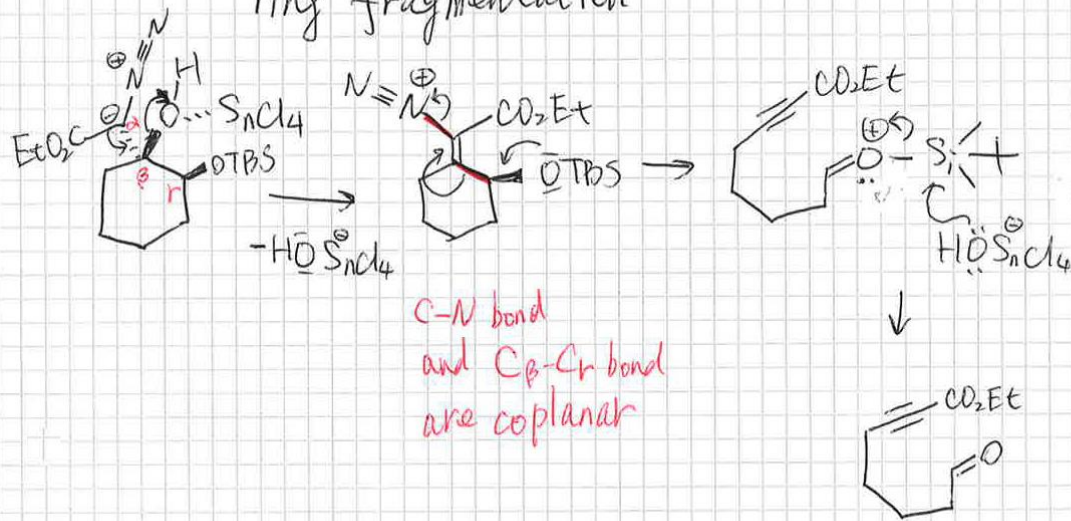 ring fragmentation
N
⊕ N H
EtO₂C ⊖ α O... SnCl₄
β r OTBS
-HO SnCl₄ ⊖
N≡N ⊕ CO₂Et
OTBS
CO₂Et
⊕ O - Si
HO SnCl₄ ⊖
C-N bond
and Cβ-Cr bond
are coplanar
CO₂Et
O